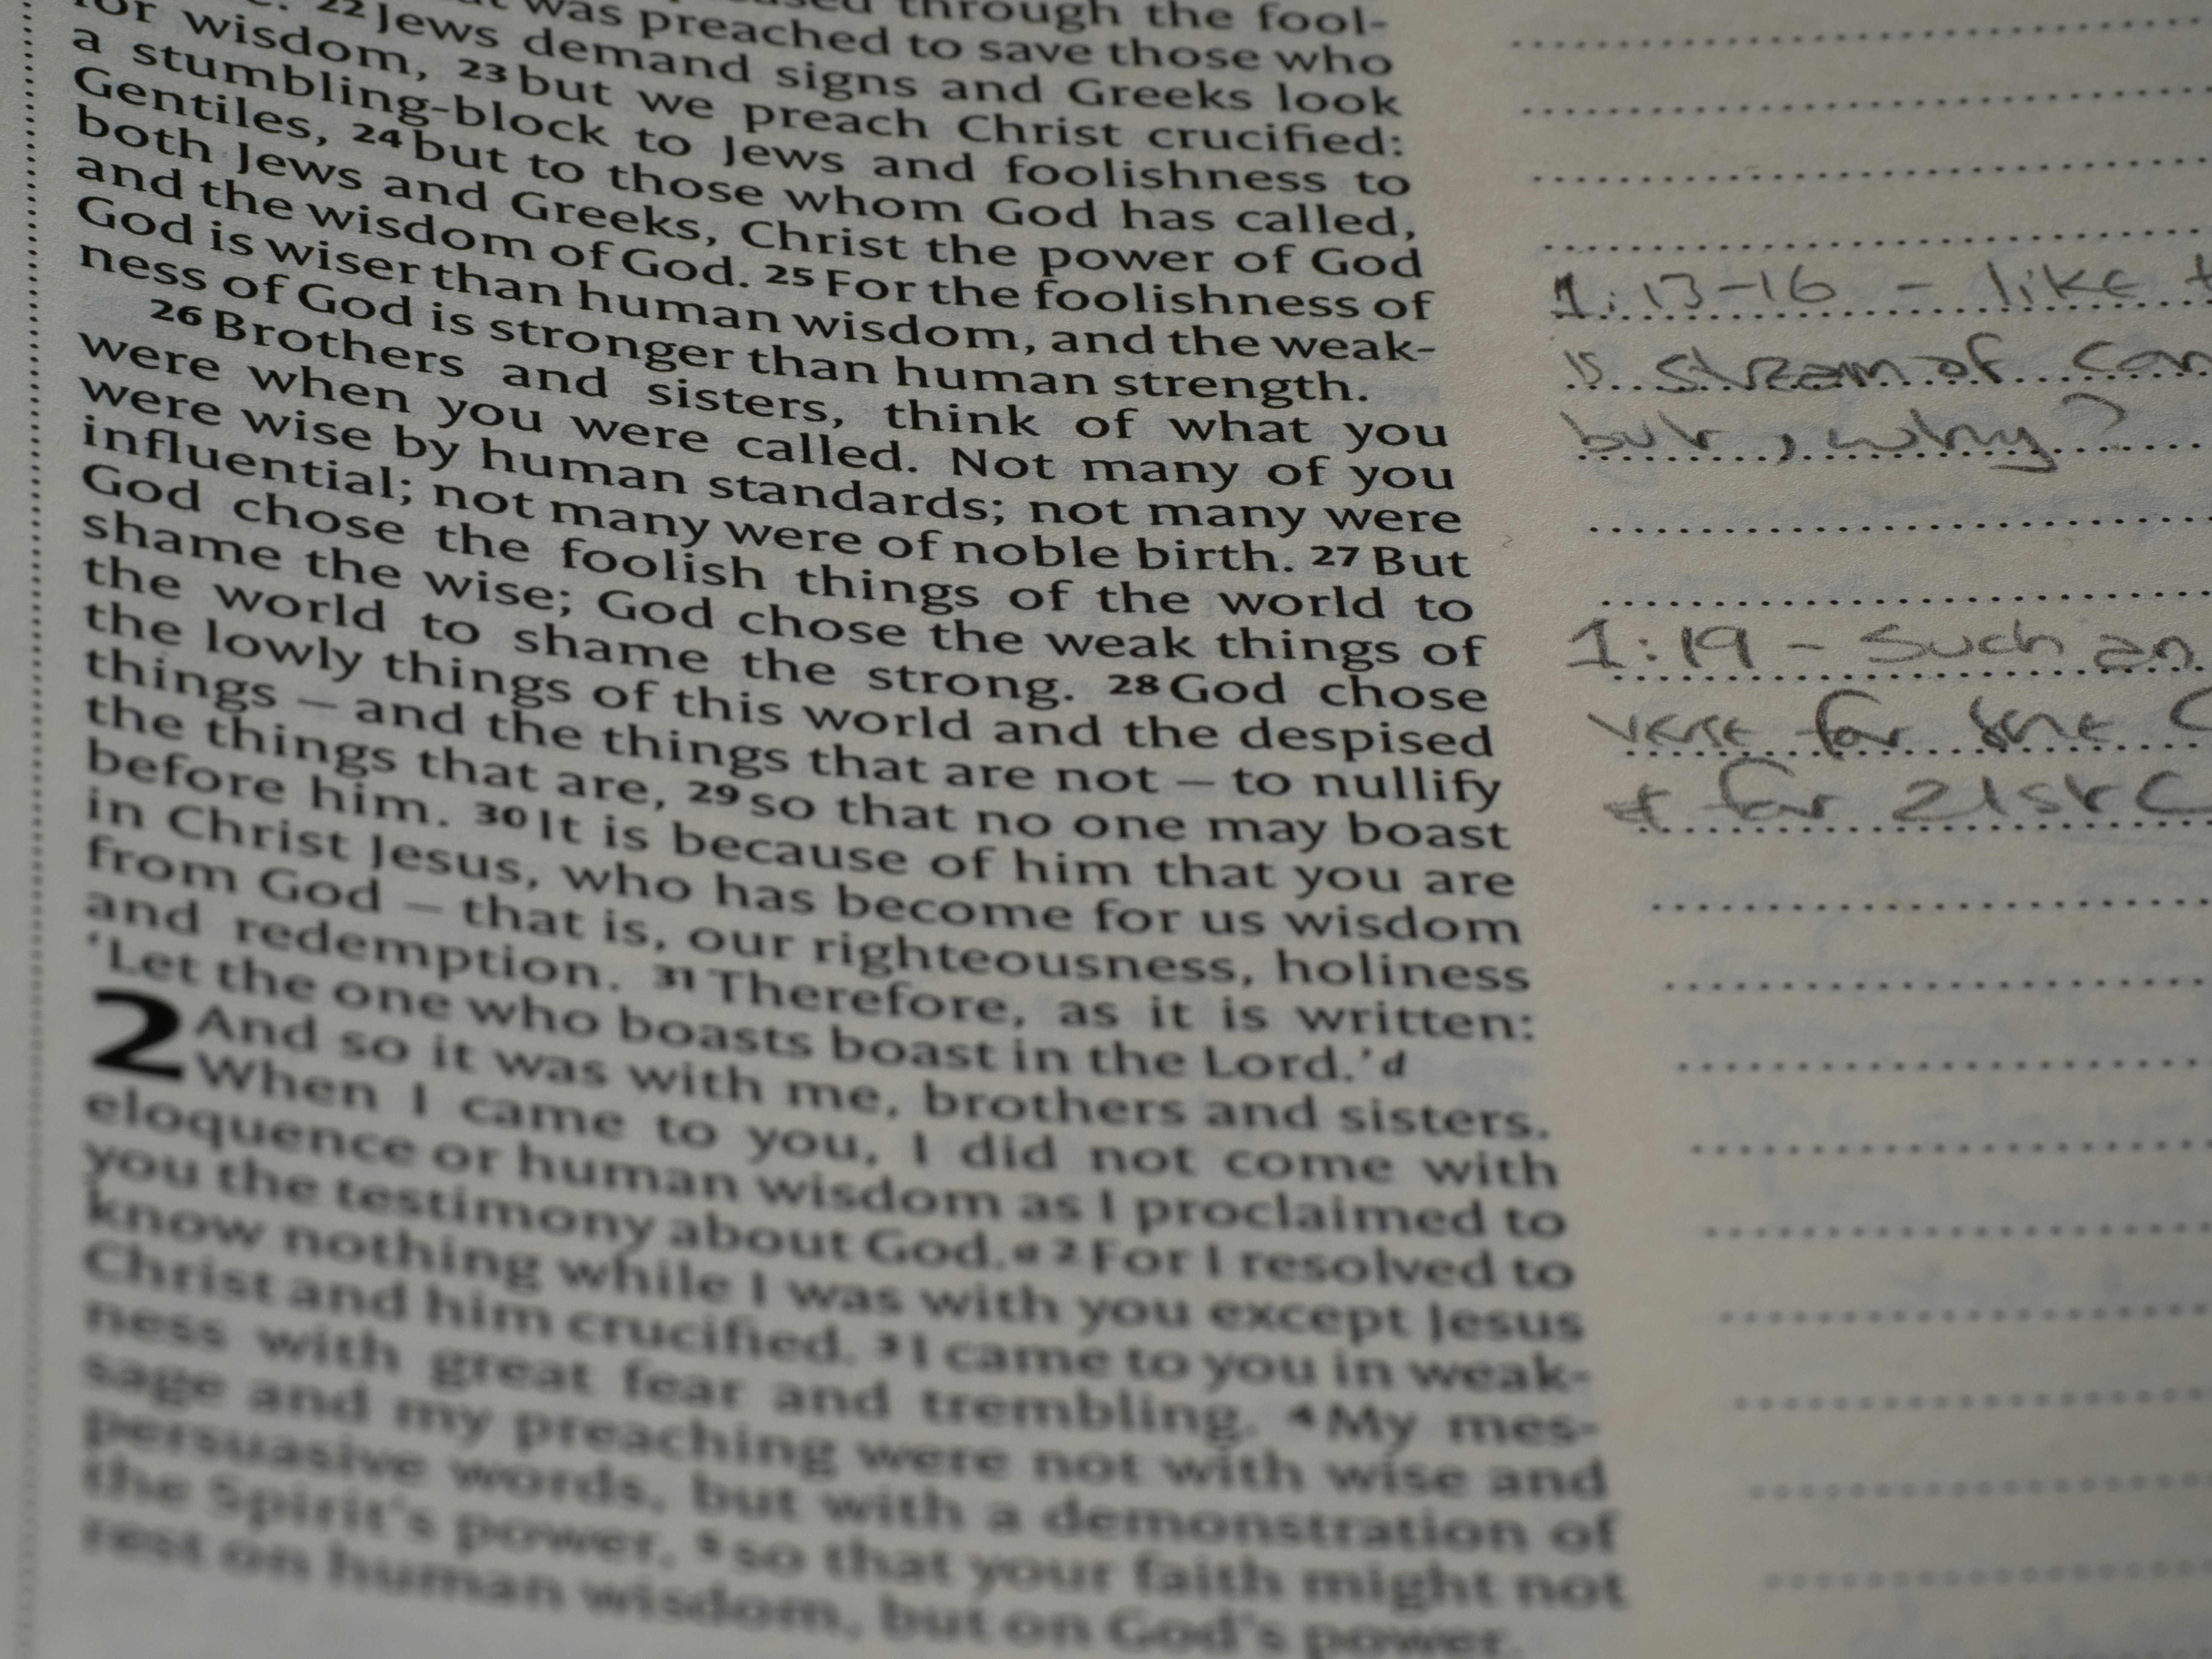 through the fool-
was preached to save those who
22 Jews demand signs and Greeks look
for wisdom, 23 but we preach Christ crucified:
a stumbling-block to Jews and foolishness to
Gentiles, 24 but to those whom God has called,
both Jews and Greeks, Christ the power of God
and the wisdom of God. 25 For the foolishness of
God is wiser than human wisdom, and the weak-
ness of God is stronger than human strength.
26 Brothers and sisters, think of what you
were when you were called. Not many of you
were wise by human standards; not many were
influential; not many were of noble birth. 27 But
God chose the foolish things of the world to
shame the wise; God chose the weak things of
the world to shame the strong. 28 God chose
the lowly things of this world and the despised
things – and the things that are not – to nullify
the things that are, 29 so that no one may boast
before him. 30 It is because of him that you are
in Christ Jesus, who has become for us wisdom
from God – that is, our righteousness, holiness
and redemption. 31 Therefore, as it is written:
‘Let the one who boasts boast in the Lord.’ d
2 And so it was with me, brothers and sisters.
When I came to you, I did not come with
eloquence or human wisdom as I proclaimed to
you the testimony about God. a 2 For I resolved to
know nothing while I was with you except Jesus
Christ and him crucified. 3 I came to you in weak-
ness with great fear and trembling. 4 My mes-
sage and my preaching were not with wise and
persuasive words, but with a demonstration of
the Spirit's power, 5 so that your faith might not
rest on human wisdom, but on God's power.
1:13-16 - like
is stream of
but, why?
1:19 - Such an
verse for
+ for 21st C